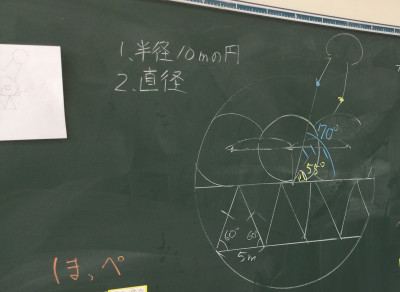 1. 半径10mの円
2. 直径
70°
55°
60° 60°
5m
ほっぺ